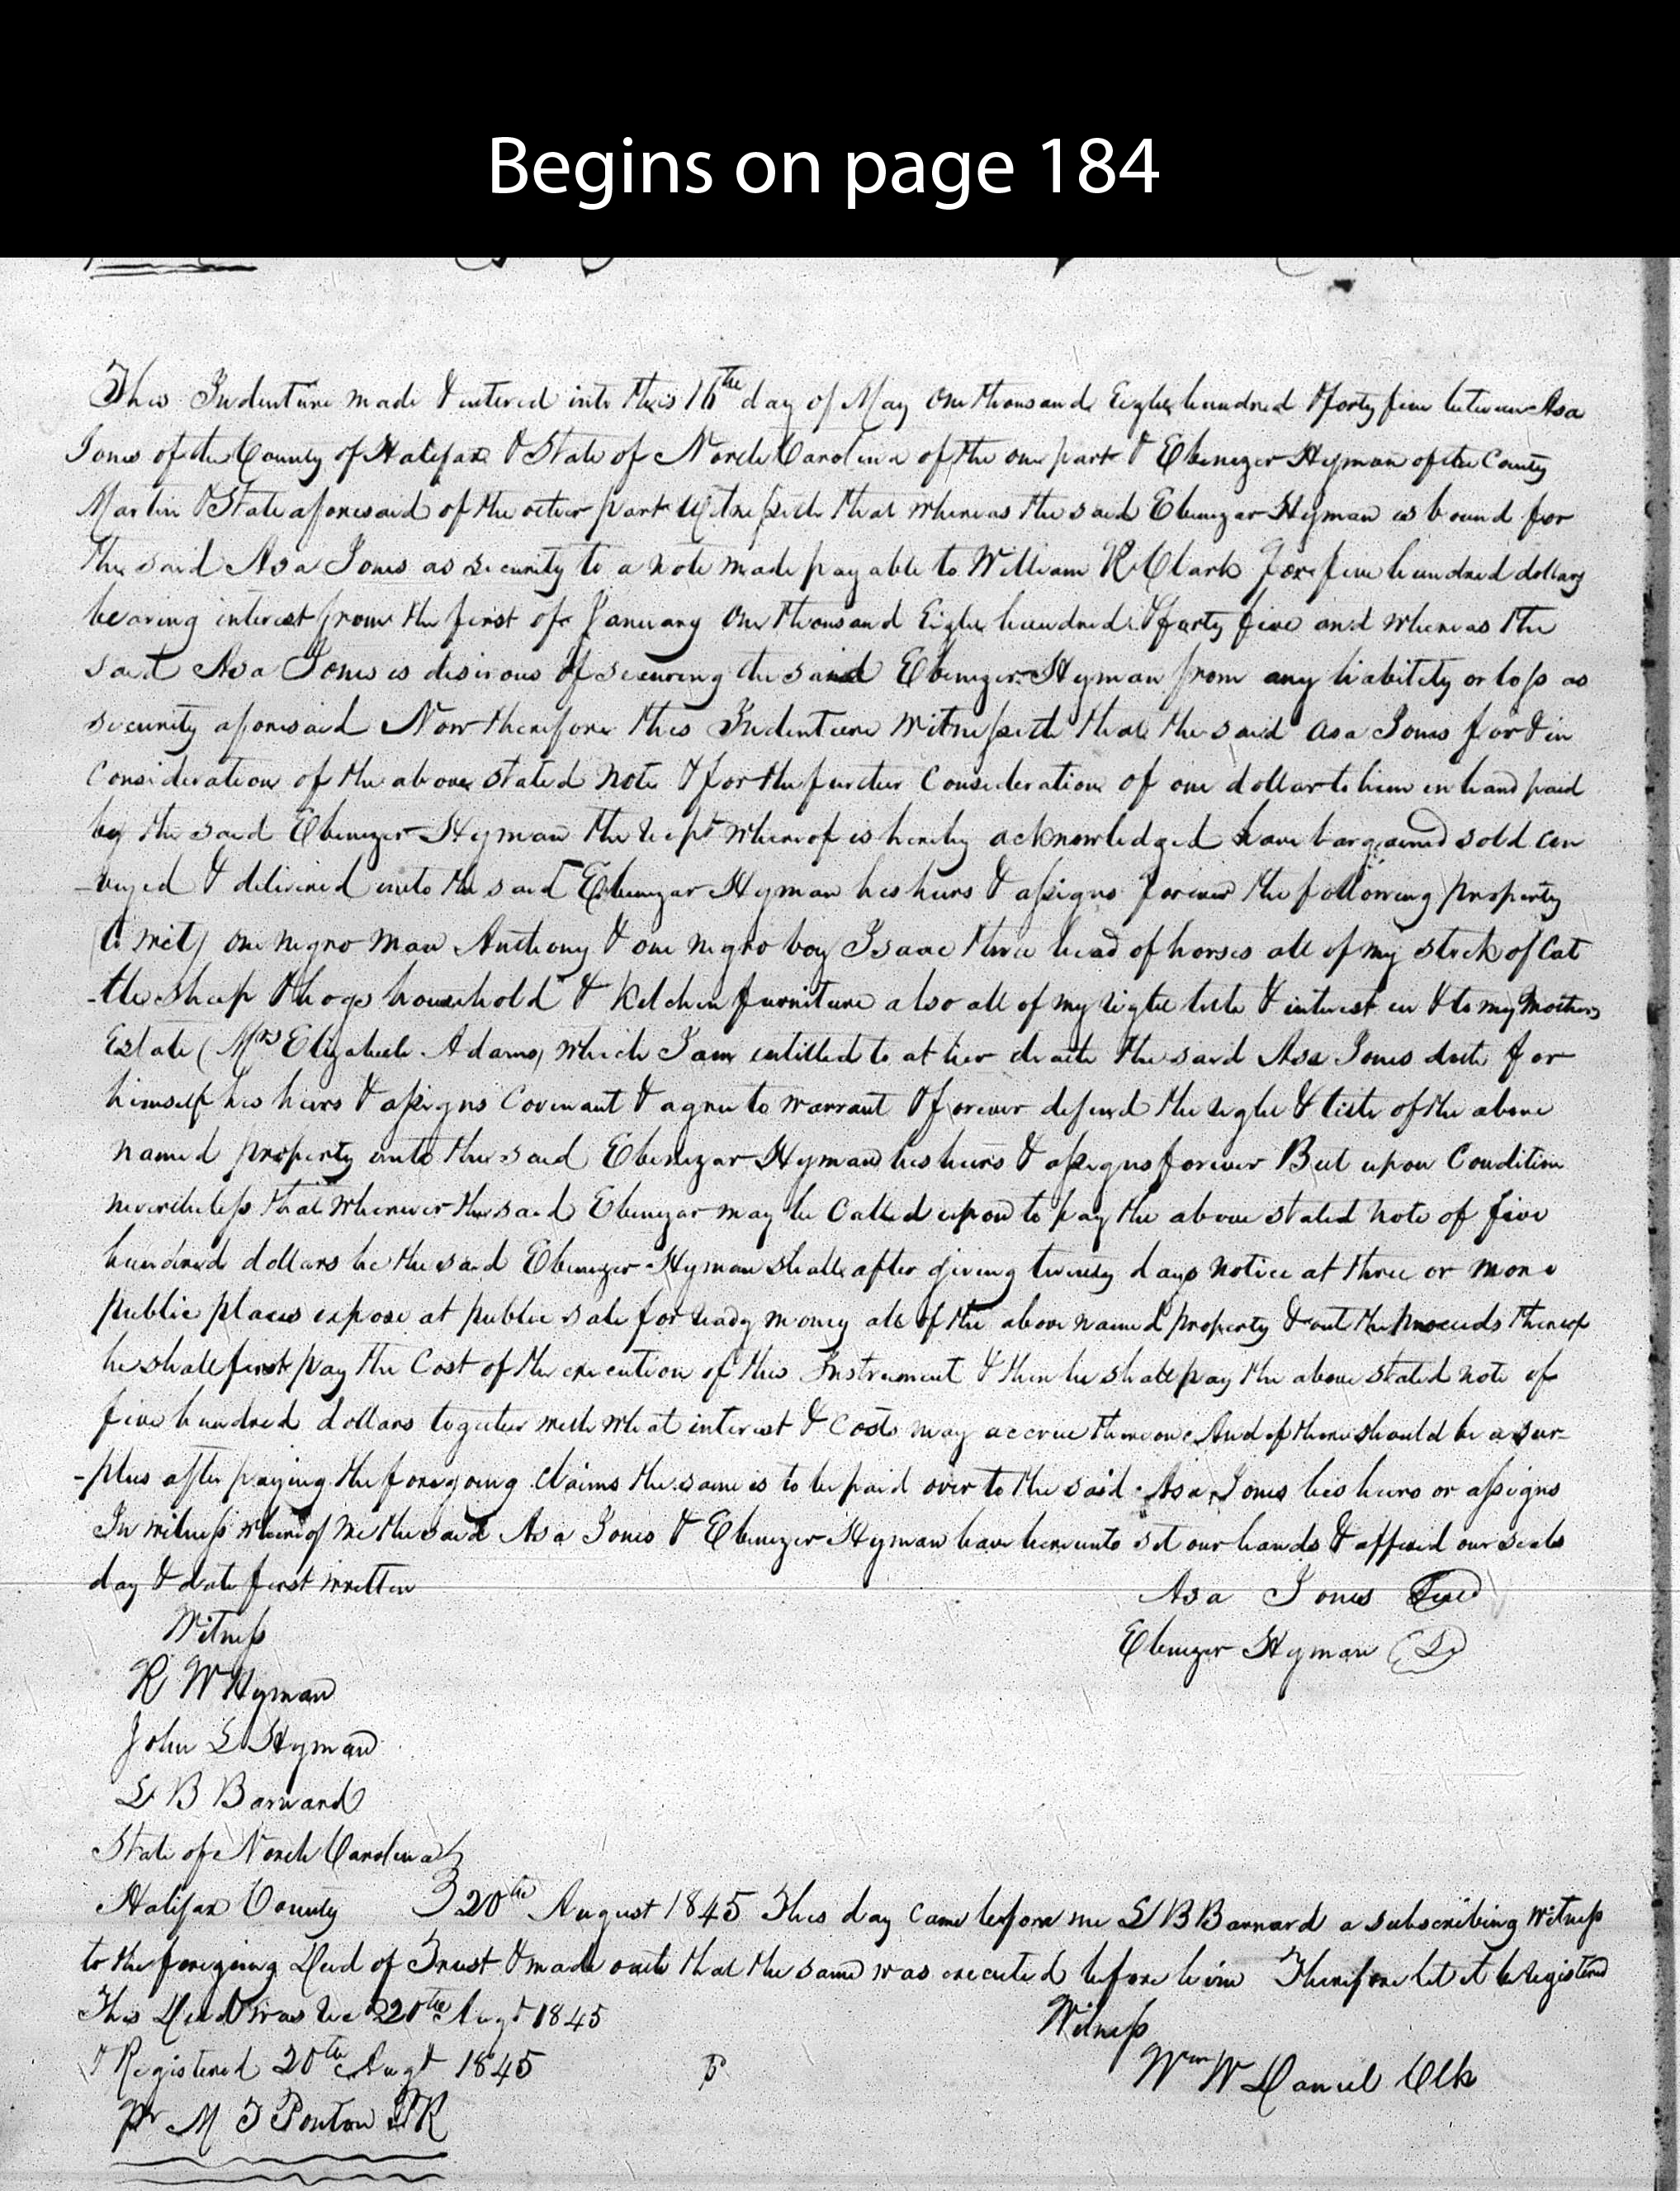 Begins on page 184
This Indenture made & entered into this 16th day of May One thousand Eight hundred & forty five between Asa
Jones of the County of Halifax & State of North Carolina of the one part & Ebenezer Hyman of the County
Martin & State aforesaid of the other part Witnesseth that whereas the said Ebenezar Hyman is bound for
the said Asa Jones as security to a note made payable to William R Clark for five hundred dollars
bearing interest from the first of January One thousand Eight hundred & forty five and whereas the
said Asa Jones is desirous of securing the said Ebenezer Hyman from any liability or loss as
security aforesaid Now therefore this Indenture Witnesseth that the said Asa Jones for & in
Consideration of the above stated note & for the further Consideration of one dollar to him in hand paid
by the said Ebenezer Hyman the recpt whereof is hereby acknowledged have bargained sold con
-veyed & delivered unto the said Ebenezar Hyman his heirs & assigns forever the following property
to wit) one negro man Anthony & one negro boy Isaac three head of horses all of my stock of Cat
-tle sheep & hogs household & Kitchen furniture also all of my right title & interest in & to my Mothers
Estate (Mrs Elizabeth Adams) which I am entitled to at her death the said Asa Jones doth for
himself his heirs & assigns Covenant & agree to warrant & forever defend the right & title of the above
named property unto the said Ebenezar Hyman his heirs & assigns forever But upon Condition
nevertheless that whenever the said Ebenezar may be Called upon to pay the above stated note of five
hundred dollars he the said Ebenezer Hyman shall after giving twenty days notice at three or more
public places expose at public sale for ready money all of the above named property & out the proceeds thereof
he shall first pay the Cost of the execution of this Instrument & then he shall pay the above stated note of
five hundred dollars together with what interest & Costs may accrue thereon And if there should be a sur-
-plus after paying the foregoing Claims the same is to be paid over to the said Asa Jones his heirs or assigns
In witness whereof We the said Asa Jones & Ebenezer Hyman have hereunto set our hands & affixed our seals
day & date first written
Asa Jones Seal
Witness
Ebenezer Hyman
R W Hyman
John L Hyman
L B Barnard
State of North Carolina
Halifax County 20th August 1845 This day came before me L B Barnard a subscribing Witness
to the foregoing Deed of Trust & made oath that the same was executed before him Therefore let it be Registered
This Deed was Rec 20th Augt 1845
Witness
& Registered 20th Augt 1845
Wm W Daniel Clk
pr M T Ponton PR